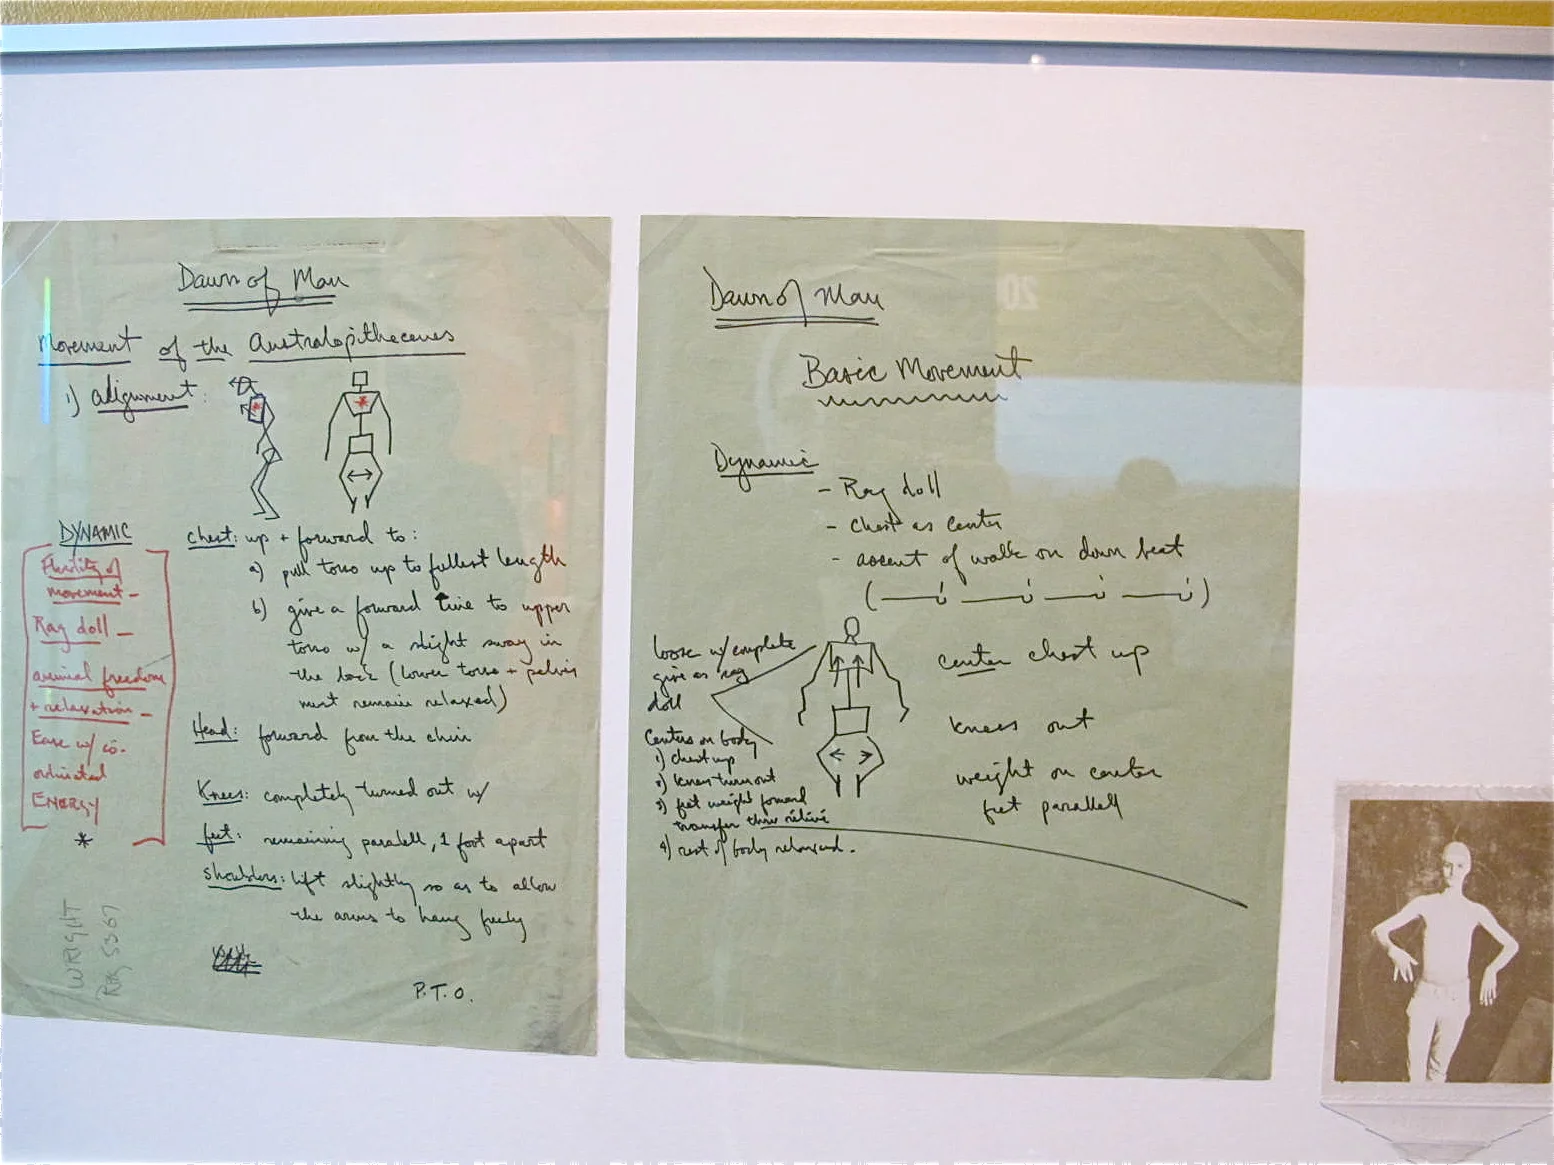 Dawn of Man
Movement of the Australopithecenes
1) alignment:
DYNAMIC
Fluidity of
movement -
Rag doll -
animal freedom
+ relaxation -
Ease w/ co-
ordinated
ENERGY
*
chest: up + forward to:
a) pull torso up to fullest length
b) give a forward line to upper
torso w/ a slight sway in
the back (lower torso + pelvis
must remain relaxed)
Head: forward from the chin
Knees: completely turned out w/
feet: remaining parallell, 1 foot apart
shoulders: lift slightly so as to allow
the arms to hang freely
P.T.O.
WRIGHT
Dawn of Man
Basic Movement
Dynamic
- Rag doll
- chest as center
- accent of walk on down beat
loose w/ complete
give as rag
doll
center chest up
knees out
weight on center
feet parallell
Centers on body
1) chest up
2) knees turn out
3) feet weight forward
transfer thru
4) rest of body relaxed.
20